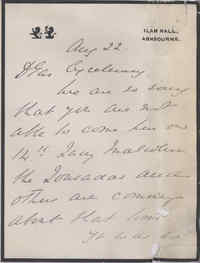 ILAM HALL,
ASHBOURNE.
Aug 22
Dear Excellency
We are so sorry
that you are not
able to come here on
12th Lady Malcolm
the Towadas and
others are coming
about that time
It was so